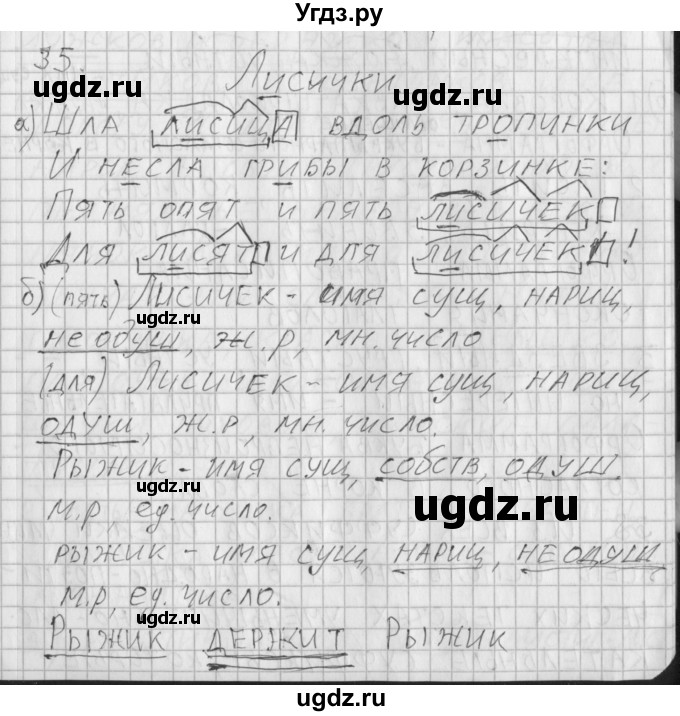 Угдз.ру
35.
Лисички
ugdz.ru ugdz.ru
а) Шла лисица вдоль тропинки
И несла грибы в корзинке:
Пять опят и пять лисичек
ugdz.ru
Для лисят и для лисичек!
б) (пять) Лисичек - имя сущ, нариц,
ugdz.ru
неодуш, ж.р, мн. число
(для) Лисичек - имя сущ, нариц,
одуш, ж.р, мн. число.
ugdz.ru
Рыжик - имя сущ, собств, одуш.
м.р, ед. число.
ugdz.ru ugdz.ru
рыжик - имя сущ, нариц, неодуш
м.р, ед. число.
ugdz.ru
Рыжик держит рыжик
ugdz.ru
ugdz.ru